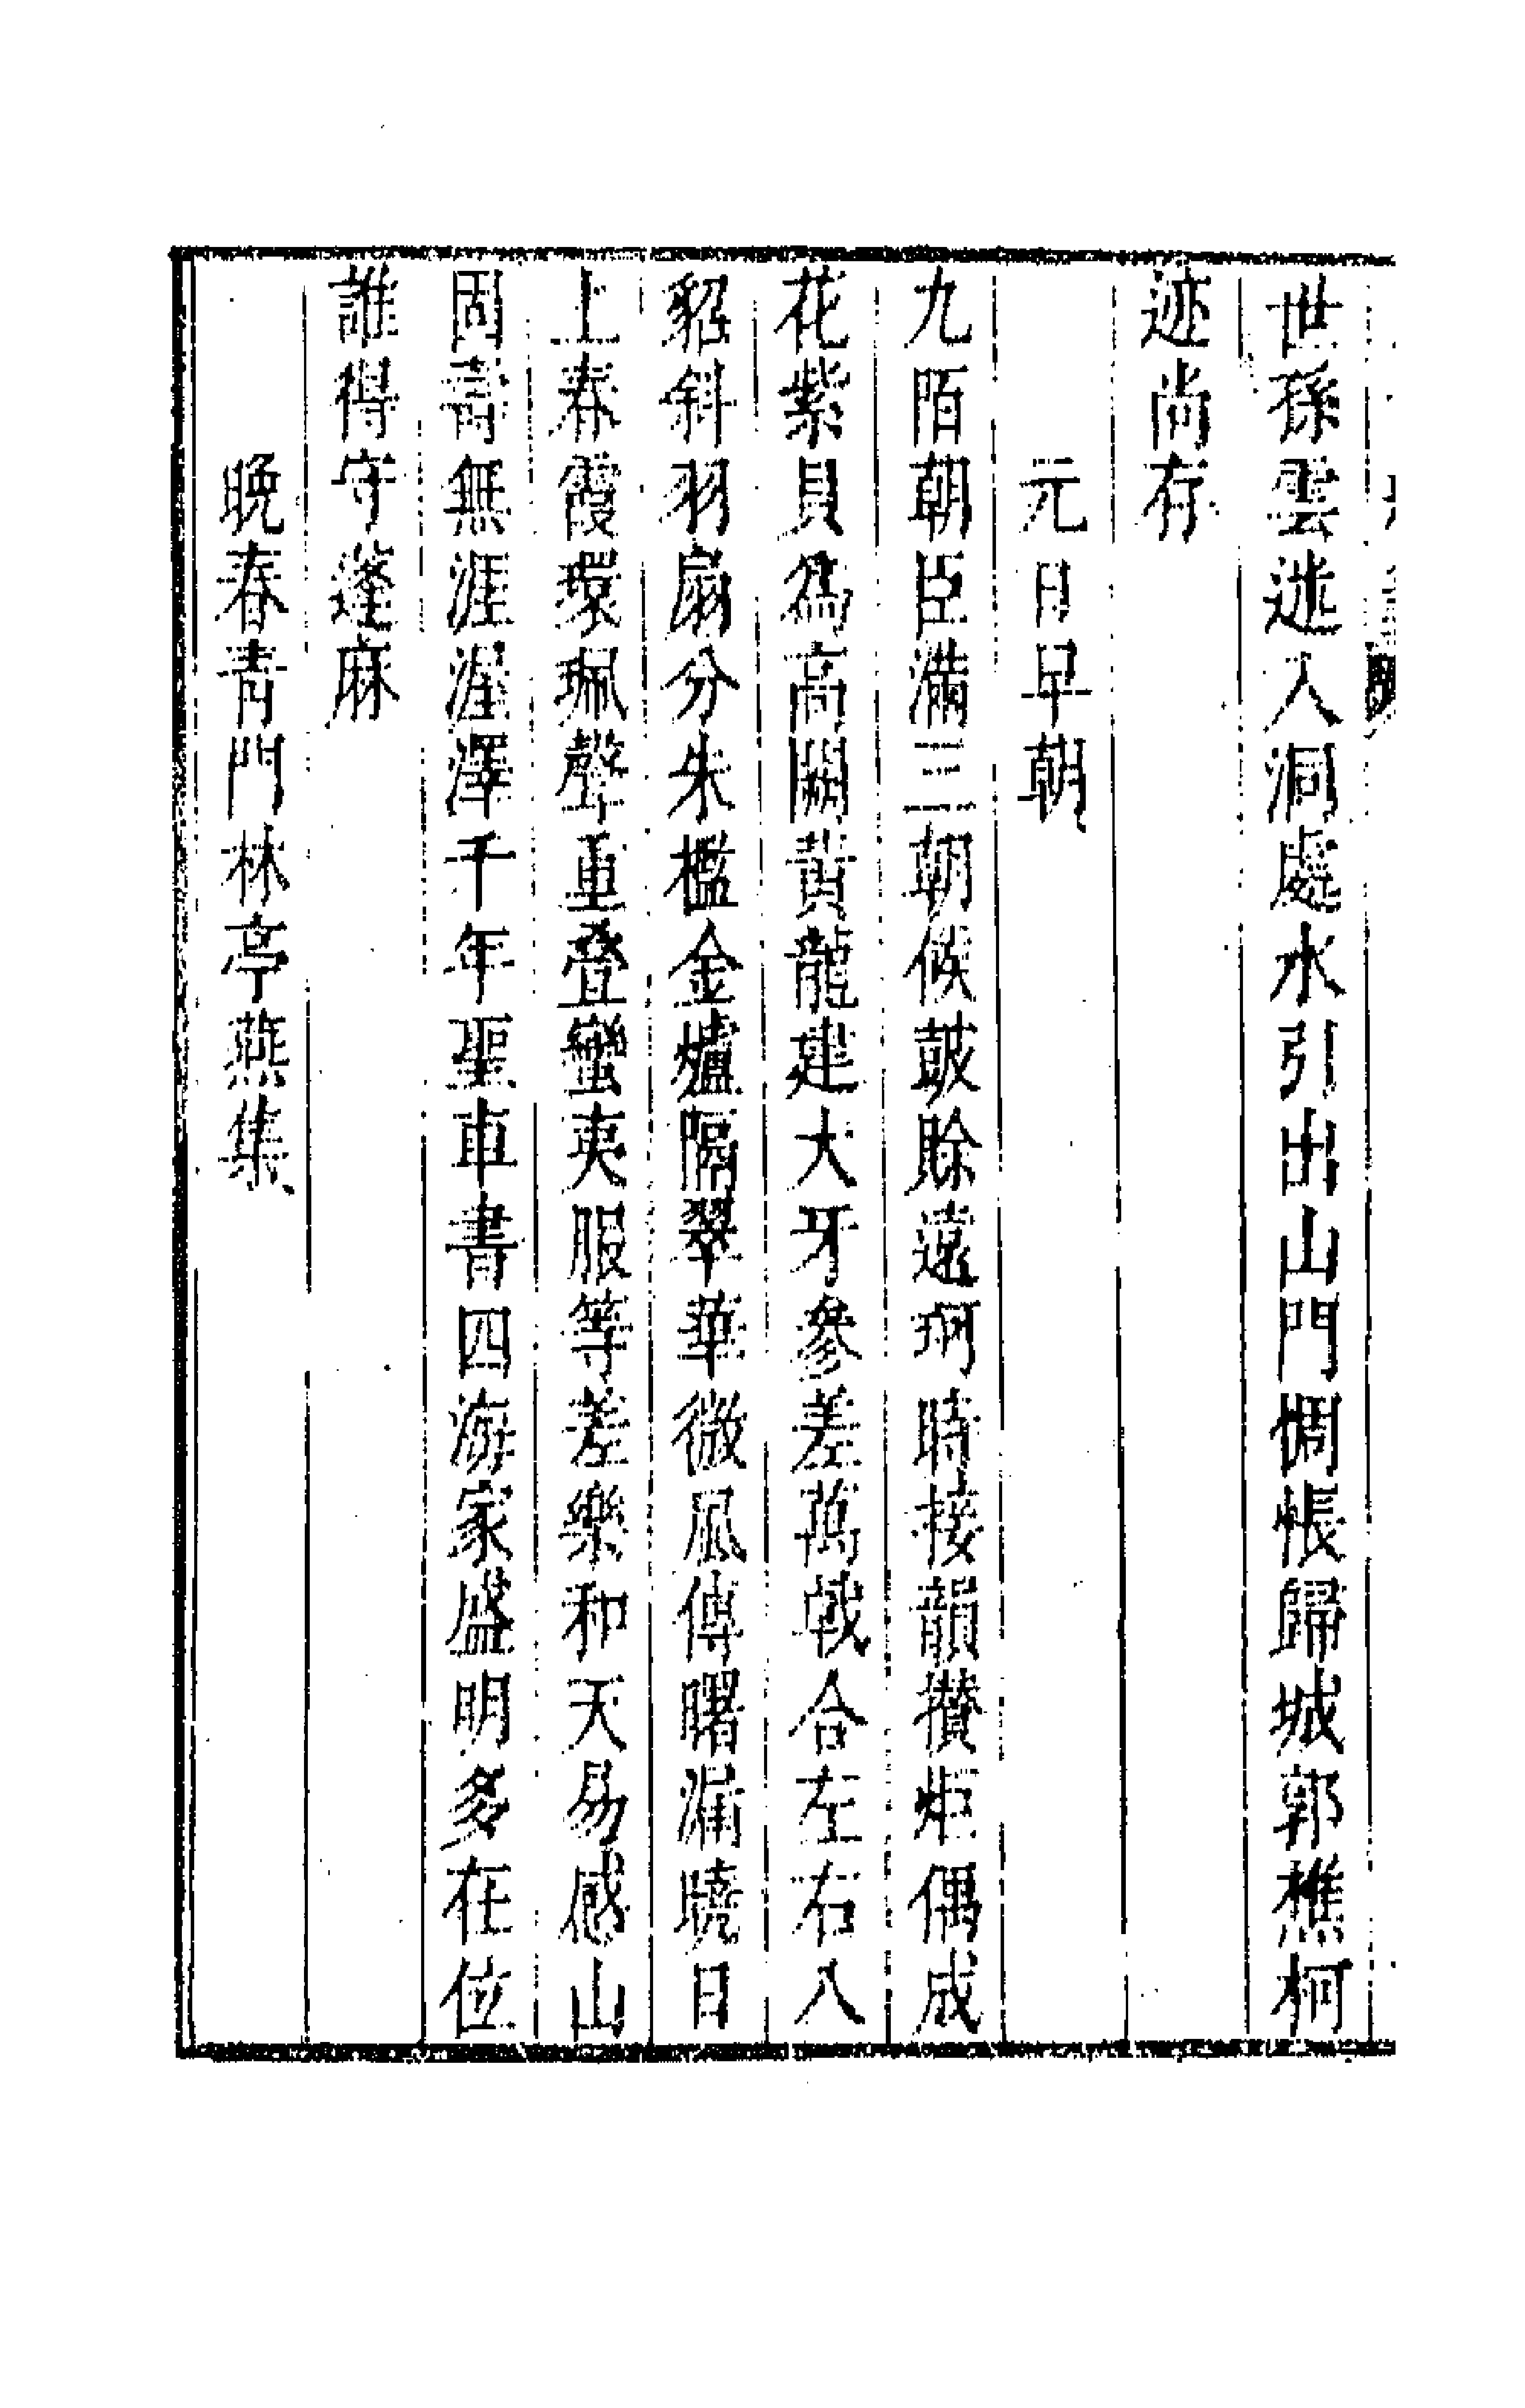 世孫雲迷入洞處水引出山門惆悵歸城郭樵柯
迹尚存
元日早朝
九陌朝臣滿三朝候鼓賖遠珂時接韻攅炬偶成
花紫貝爲高闕黄龍建大牙參差萬戟合左右八
貂斜羽扇分朱檻金爐隔翠華微風傳曙漏曉日
上春霞環珮聲重叠蠻夷服等差樂和天易感山
固壽無涯渥澤千年聖車書四海家盛明多在位
誰得守蓬麻
晩春青門林亭燕集